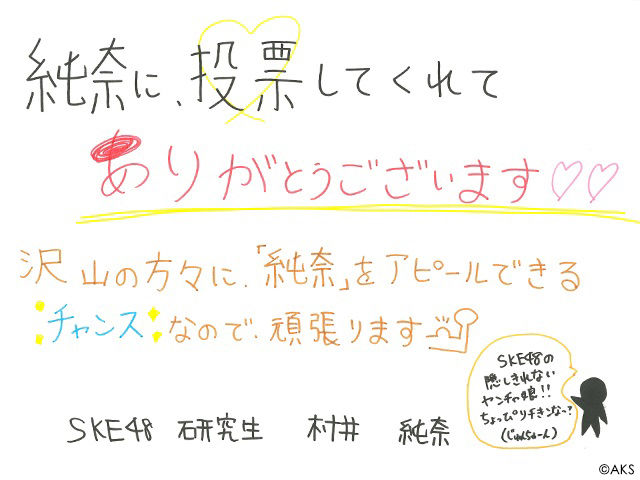 純奈に、投票してくれて
ありがとうございます♡♡
沢山の方々に、「純奈」をアピールできる
チャンスなので、頑張ります
SKE48の
隠しきれない
ヤンチャ娘!!
ちょっぴりチキンなっ?
(じゅんちゅーん)
SKE48 研究生 村井 純奈
©AKS